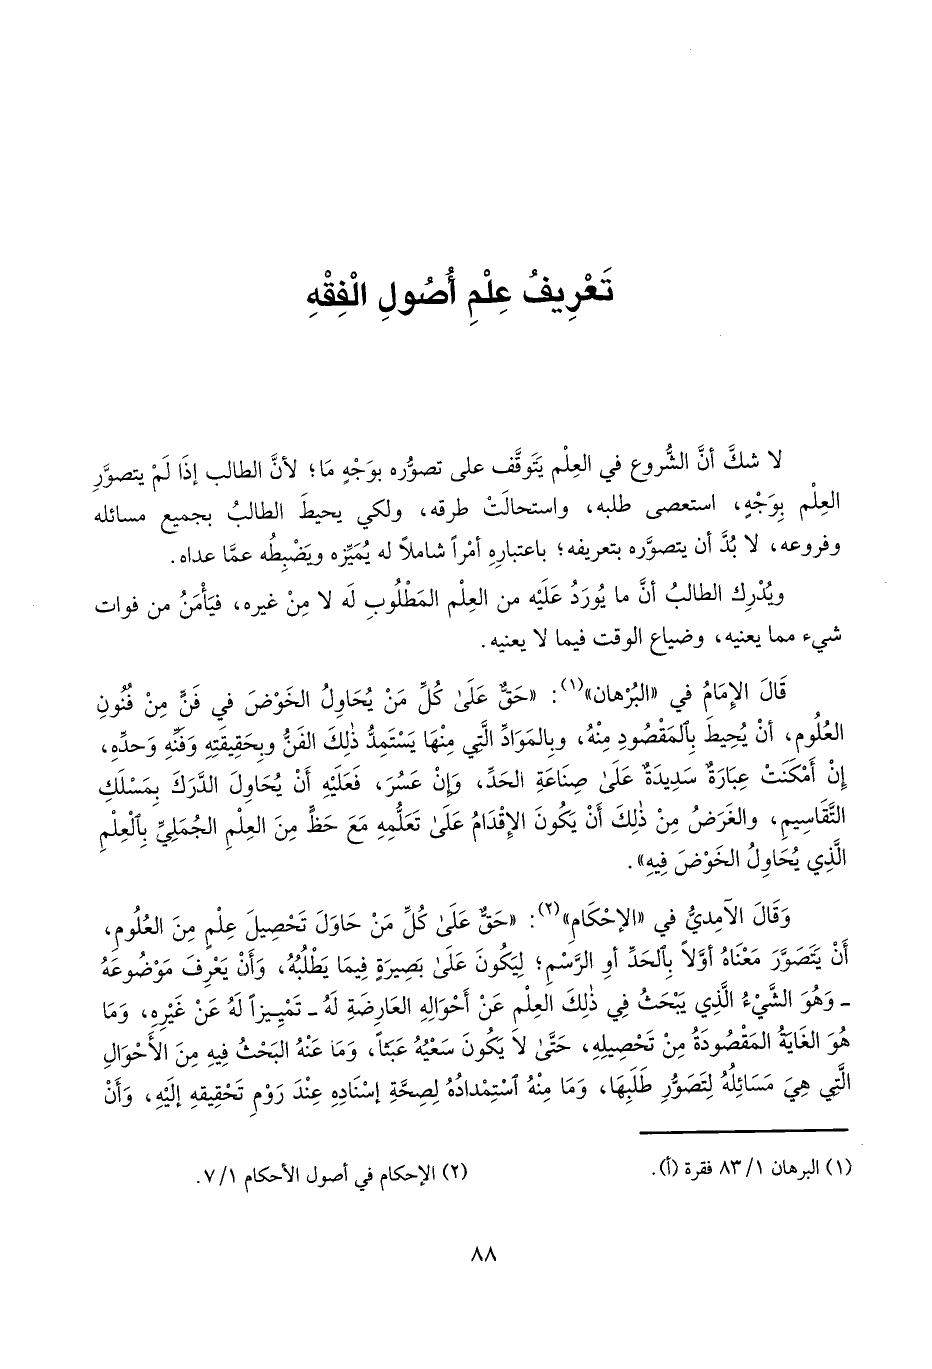 تَعْرِيفُ عِلْمِ أُصُولِ الْفِقْهِ
لا شكَّ أنَّ الشُّروع في العِلْم يَتَوقَّف على تصوُّره بوَجْهٍ مَا؛ لأنَّ الطالب إذَا لَمْ يتصوَّرِ
العِلْم بِوَجْهٍ، استعصى طلبه، واستحالَتْ طرقه، ولكي يحيطَ الطالبُ بجميع مسائله
وفروعه، لا بُدَّ أن يتصوَّره بتعريفه؛ باعتبارِهِ أمْراً شاملاً له يُمَيِّزه ويَضْبِطُه عمَّا عداه.
ويُدْرِك الطالبُ أنَّ ما يُورَدُ عَلَيْه من العِلْم المَطْلُوبِ لَه لا مِنْ غيره، فيَأْمَنُ من فوات
شيء مما يعنيه، وضياع الوقت فيما لا يعنيه.
قَالَ الإمَامُ في «البُرْهان»(١): «حَقٌّ عَلَىٰ كُلِّ مَنْ يُحَاوِلُ الخَوْضَ في فَنٍّ مِنْ فُنُونِ
العُلُوم، أنْ يُحِيطَ بِٱلمَقْصُودِ مِنْهُ، وبِالمَوَادِّ الَّتِي مِنْهَا يَسْتَمِدُّ ذٰلِكَ الفَنُّ وبِحَقِيقَتِهِ وَفَنِّهِ وَحدِّهِ،
إنْ أَمْكَنَتْ عِبَارَةٌ سَدِيدَةٌ عَلَىٰ صِنَاعَةِ الحَدِّ، وَإنْ عَسُرَ، فَعَلَيْهِ أَنْ يُحَاوِلَ الدَّرَكَ بِمَسْلَكِ
التَّقَاسِيمِ، والغَرَضُ مِنْ ذٰلِكَ أَنْ يَكُونَ الإقْدَامُ عَلَىٰ تَعَلُّمِهِ مَعَ حَظٍّ مِنَ العِلْمِ الجُمَلِيِّ بِٱلْعِلْمِ
الَّذِي يُحَاوِلُ الخَوْضَ فِيهِ».
وَقَالَ الآمِدِيُّ في «الإحْكَامِ»(٢): «حَقٌّ عَلَىٰ كُلِّ مَنْ حَاوَلَ تَحْصِيلَ عِلْمٍ مِنَ العُلُومِ،
أَنْ يَتَصَوَّرَ مَعْنَاهُ أوَّلاً بِٱلحَدِّ أوِ الرَّسْمِ؛ لِيَكُونَ عَلَىٰ بَصِيرَةٍ فِيمَا يَطْلُبُهُ، وَأنْ يَعْرِفَ مَوْضُوعَهُ
ـ وَهُوَ الشَّيْءُ الَّذِي يَبْحَثُ فِي ذٰلِكَ العِلْم عَنْ أحْوَالِهِ العَارِضَةِ لَهُ ـ تَمْيِيزاً لَهُ عَنْ غَيْرِهِ، وَمَا
هُوَ الغَايَةُ المَقْصُودَةُ مِنْ تَحْصِيلِهِ، حَتَّىٰ لا يَكُونَ سَعْيُهُ عَبَثاً، وَمَا عَنْهُ البَحْثُ فِيهِ مِنَ الأَحْوَالِ
الَّتِي هِيَ مَسَائِلُهُ لِتَصَوُّرِ طَلَبِهَا، وَمَا مِنْهُ ٱسْتِمْدادُهُ لِصِحَّةِ إسْنَادِهِ عِنْدَ رَوْمِ تَحْقِيقِهِ إلَيْهِ، وَأَنْ
(١) البرهان ١/ ٨٣ فقرة (أ).
(٢) الإحكام في أصول الأحكام ١/ ٧.
٨٨